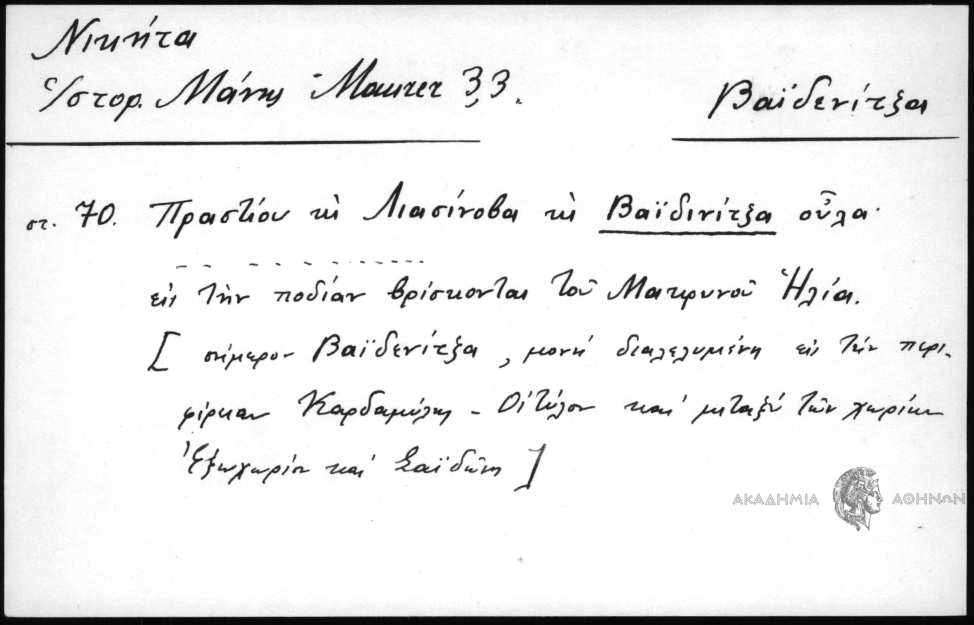 Νικήτα
Ἱστορ. Μάνης Maurer 33.
Βαϊδενίτζα
στ. 70. Πραστίου κὶ Λιασίνοβα κὶ Βαϊδινίτζα οὖλα
εἰς τὴν ποδίαν βρίσκονται τοῦ Μακρυνοῦ Ἠλία.
[ σήμερον Βαϊδενίτζα, μονὴ διαλελυμένη εἰς τὴν περι-
φέρειαν Καρδαμύλης - Οἰτύλου καὶ μεταξὺ τῶν χωρίων
Ἐξωχωρίου καὶ Σαϊδῶνης ]
ΑΚΑΔΗΜΙΑ ΑΘΗΝΩΝ